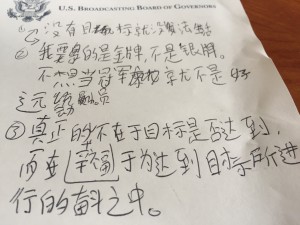 U.S. BROADCASTING BOARD OF GOVERNORS
① 没有目标就没法活
② 我要的是金牌,不是银牌。
不想当冠军就不是好
运动员
③ 真正的不在于目标是否达到,
而在幸福于为达到目标所进
行的奋斗之中。